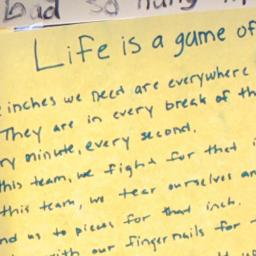 bad so hung
Life is a game of
inches we need are everywhere
They are in every break of th
ry minute, every second.
this team, we fight for that i
this team, we tear ourselves an
nd us to pieces for that inch.
with our fingernails for